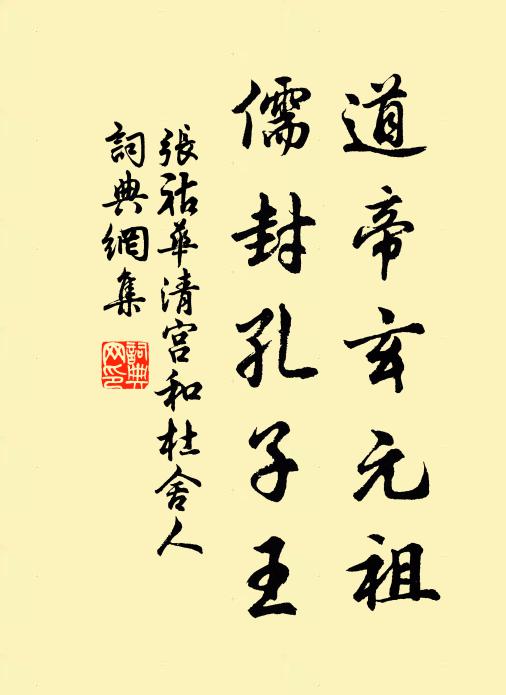 道帝玄元祖
儒封孔子王
張祜華清宮和杜舍人
詞典網集
詞典網印